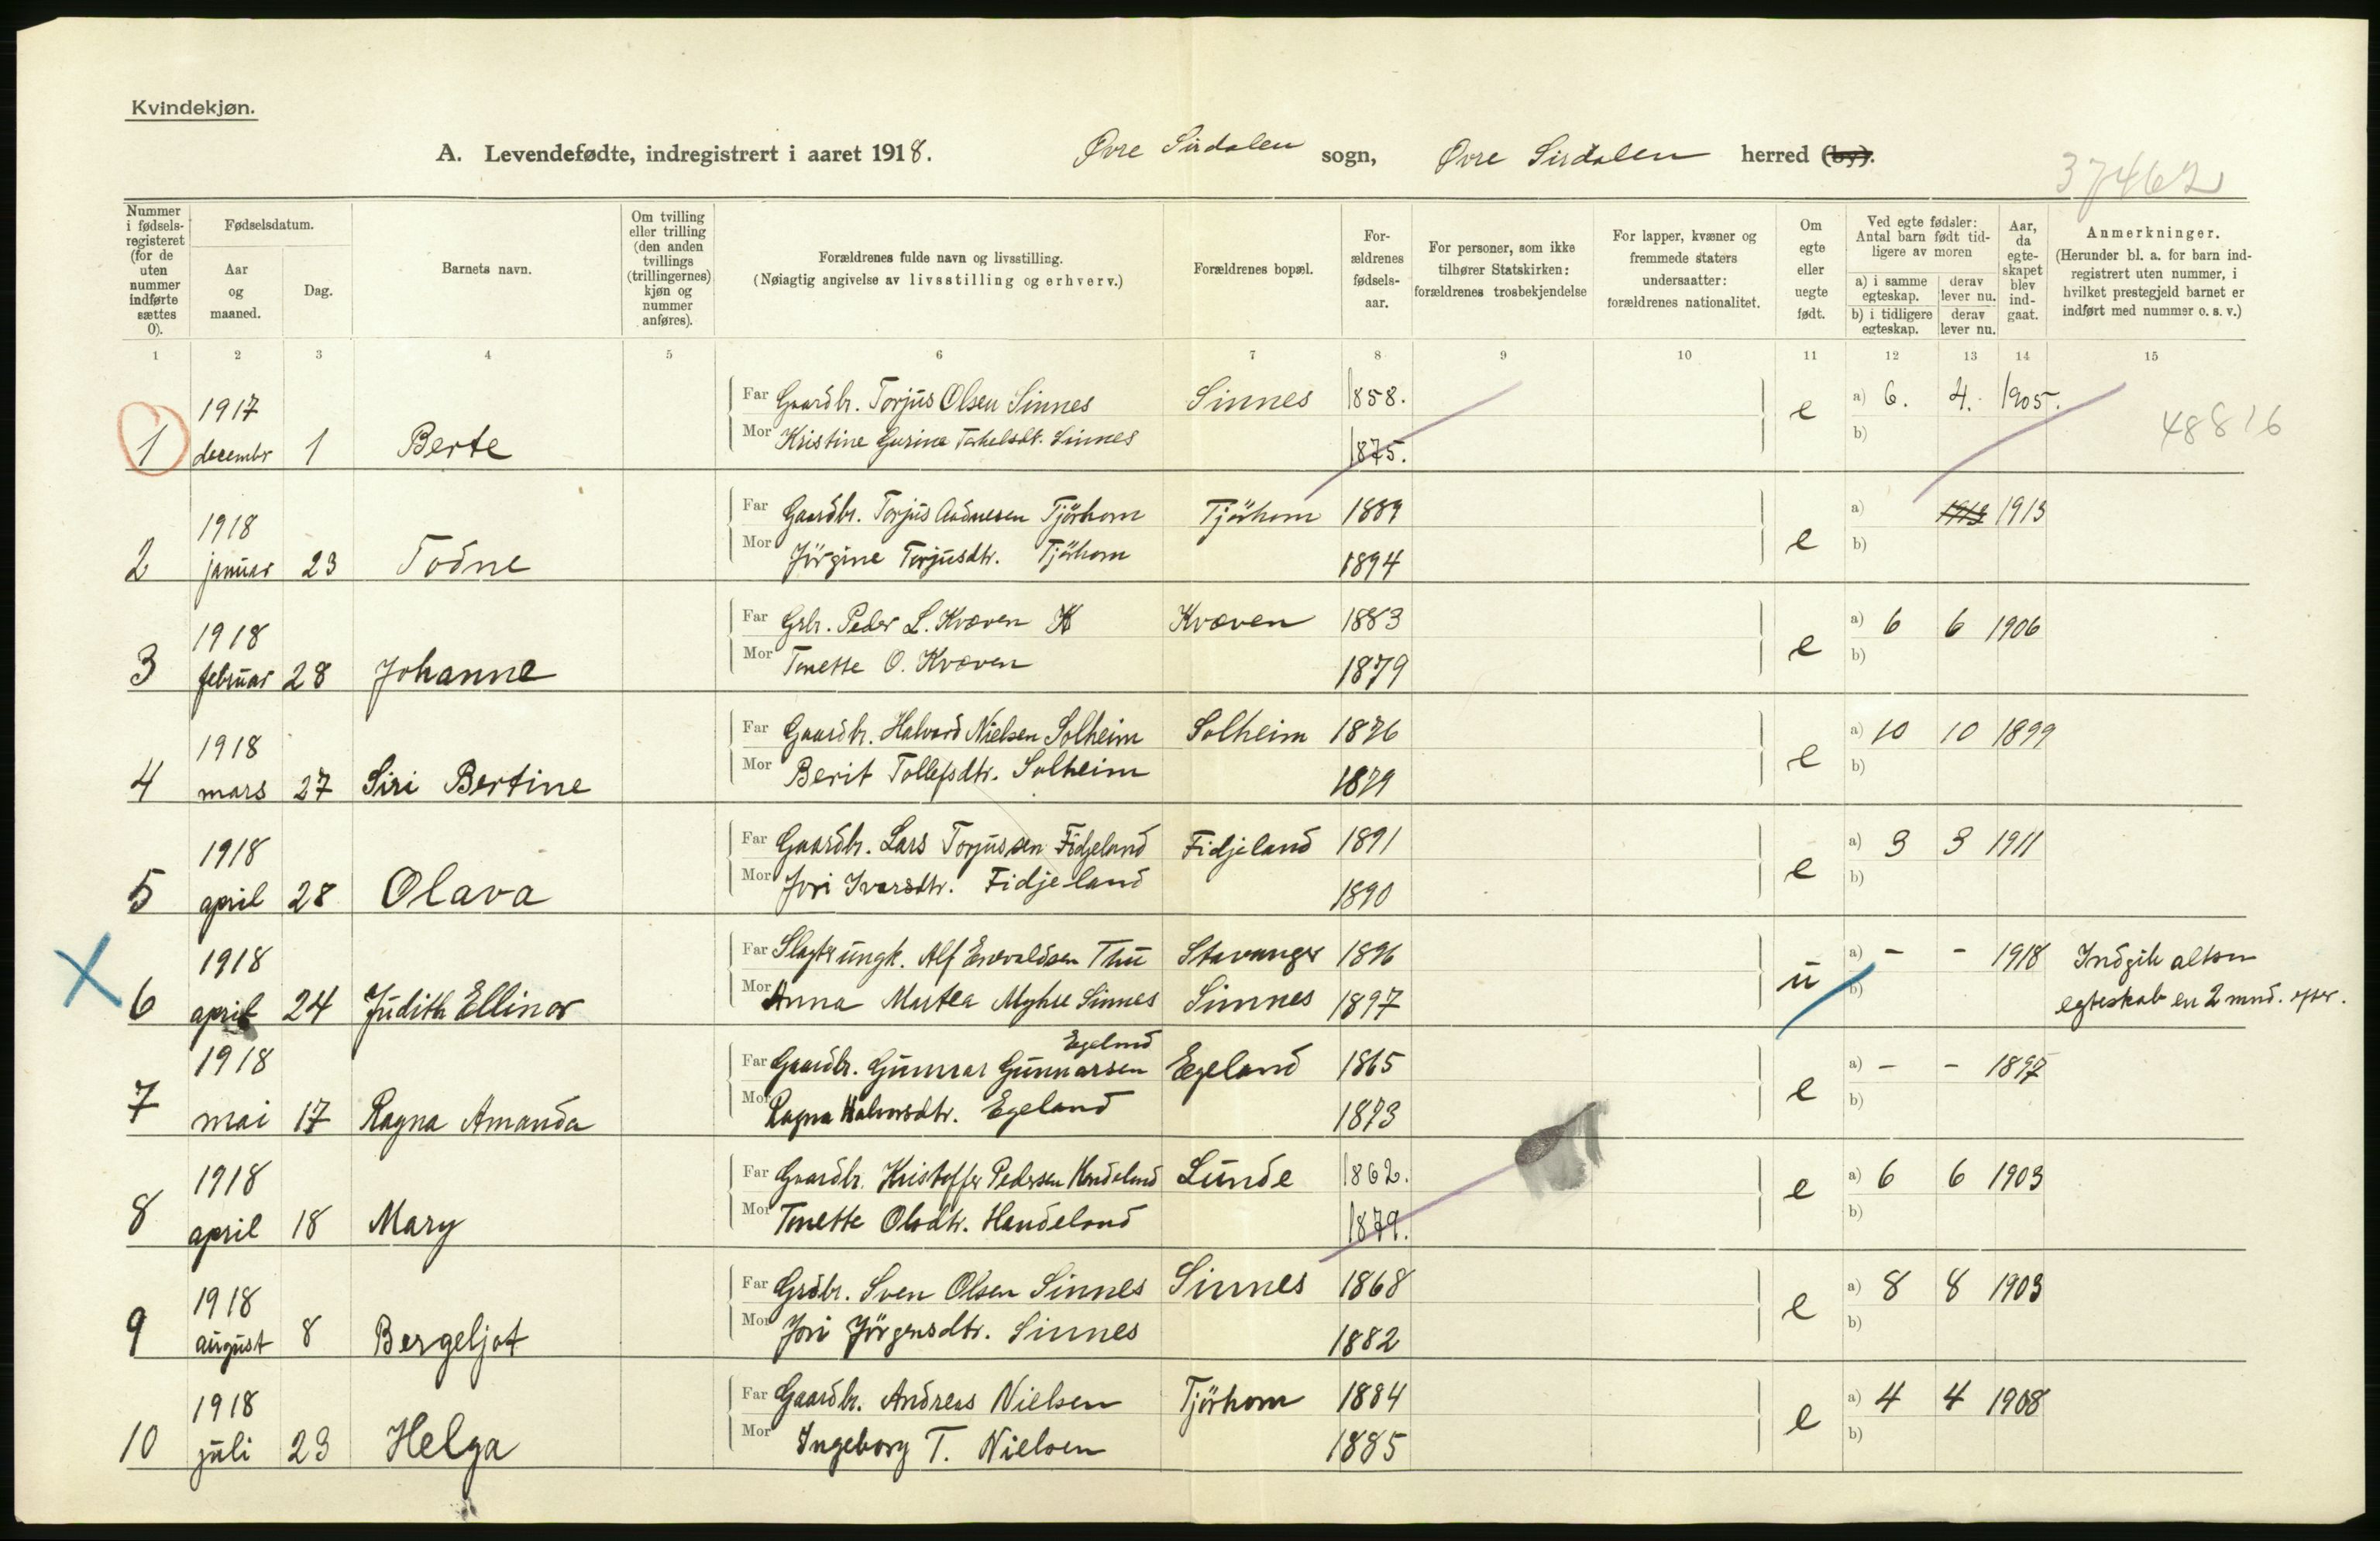 Kvindekjøn.
A. Levendefødte, indregistrert i aaret 1918. Øvre Sirdalen sogn, Øvre Sirdalen herred (by).
37462
Nummer i fødsels-registeret (for de uten nummer indførte sættes 0).
Fødselsdatum.
Aar og maaned.
Dag.
Barnets navn.
Om tvilling eller trilling (den anden tvillings (trillingernes) kjøn og nummer anføres).
Forældrenes fulde navn og livsstilling.
(Nøiagtig angivelse av livsstilling og erhverv.)
Forældrenes bopæl.
For-ældrenes fødsels-aar.
For personer, som ikke tilhører Statskirken: forældrenes trosbekjendelse
For lapper, kvæner og fremmede staters undersaatter: forældrenes nationalitet.
Om egte eller uegte født.
Ved egte fødsler: Antal barn født tid-ligere av moren
a) i samme egteskap. derav lever nu.
b) i tidligere egteskap. derav lever nu.
Aar, da egte-skapet blev ind-gaat.
Anmerkninger.
(Herunder bl. a. for barn ind-registrert uten nummer, i hvilket prestegjeld barnet er indført med nummer o. s. v.)
1 2 3 4 5 6 7 8 9 10 11 12 13 14 15
1917 Far Gaardbr. Torjus Olsen Sinnes Sinnes 1858. e a) 6. 4. 1905.
1 decembr 1 Berte Mor Kristine Gurine Takelsdt. Sinnes 1875. b) 48816
1918 Far Gaardbr. Torjus Aadnesen Tjörhom Tjörhom 1889 e a) 1913 1913
2 januar 23 Todne Mor Jörgine Torjusdtr. Tjörhom 1894 b)
1918 Far Grbr. Peder L. Kvæven Kvæven 1883 e a) 6 6 1906
3 februar 28 Johanne Mor Tonette O. Kvæven 1879 b)
1918 Far Gaardbr. Halvard Nielsen Solheim Solheim 1876 e a) 10 10 1899
4 mars 27 Siri Bertine Mor Berit Tollefsdtr. Solheim 1879 b)
1918 Far Gaardbr. Lars Torjussen Fidjeland Fidjeland 1891 e a) 3 3 1911
5 april 28 Olava Mor Jori Ivarsdtr. Fidjeland 1890 b)
1918 Far Slagterungk. Alf Enevaldsen Thu Stavanger 1896 u a) - - 1918 Indgik altsaa
X 6 april 24 Judith Ellinor Mor Anna Martea Myhre Sinnes Sinnes 1897 b) egteskab en 2 mnd. efter.
1918 Far Gaardbr. Gunnar Gunnarsen Egeland Egeland 1865 e a) - - 1897
7 mai 17 Ragna Amanda Mor Ragna Halvorsdtr. Egeland 1873 b)
1918 Far Gaardbr. Kristoffer Pedersen Handeland Lunde 1862. e a) 6 6 1903
8 april 18 Mary Mor Tonette Olsdtr. Handeland 1879. b)
1918 Far Grdbr. Sven Olsen Sinnes Sinnes 1868 e a) 8 8 1903
9 august 8 Bergeljot Mor Jori Jörgensdtr. Sinnes 1882 b)
1918 Far Gaardbr. Andreas Nielsen Tjörhom 1884 e a) 4 4 1908
10 juli 23 Helga Mor Ingeborg T. Nielsen 1885 b)